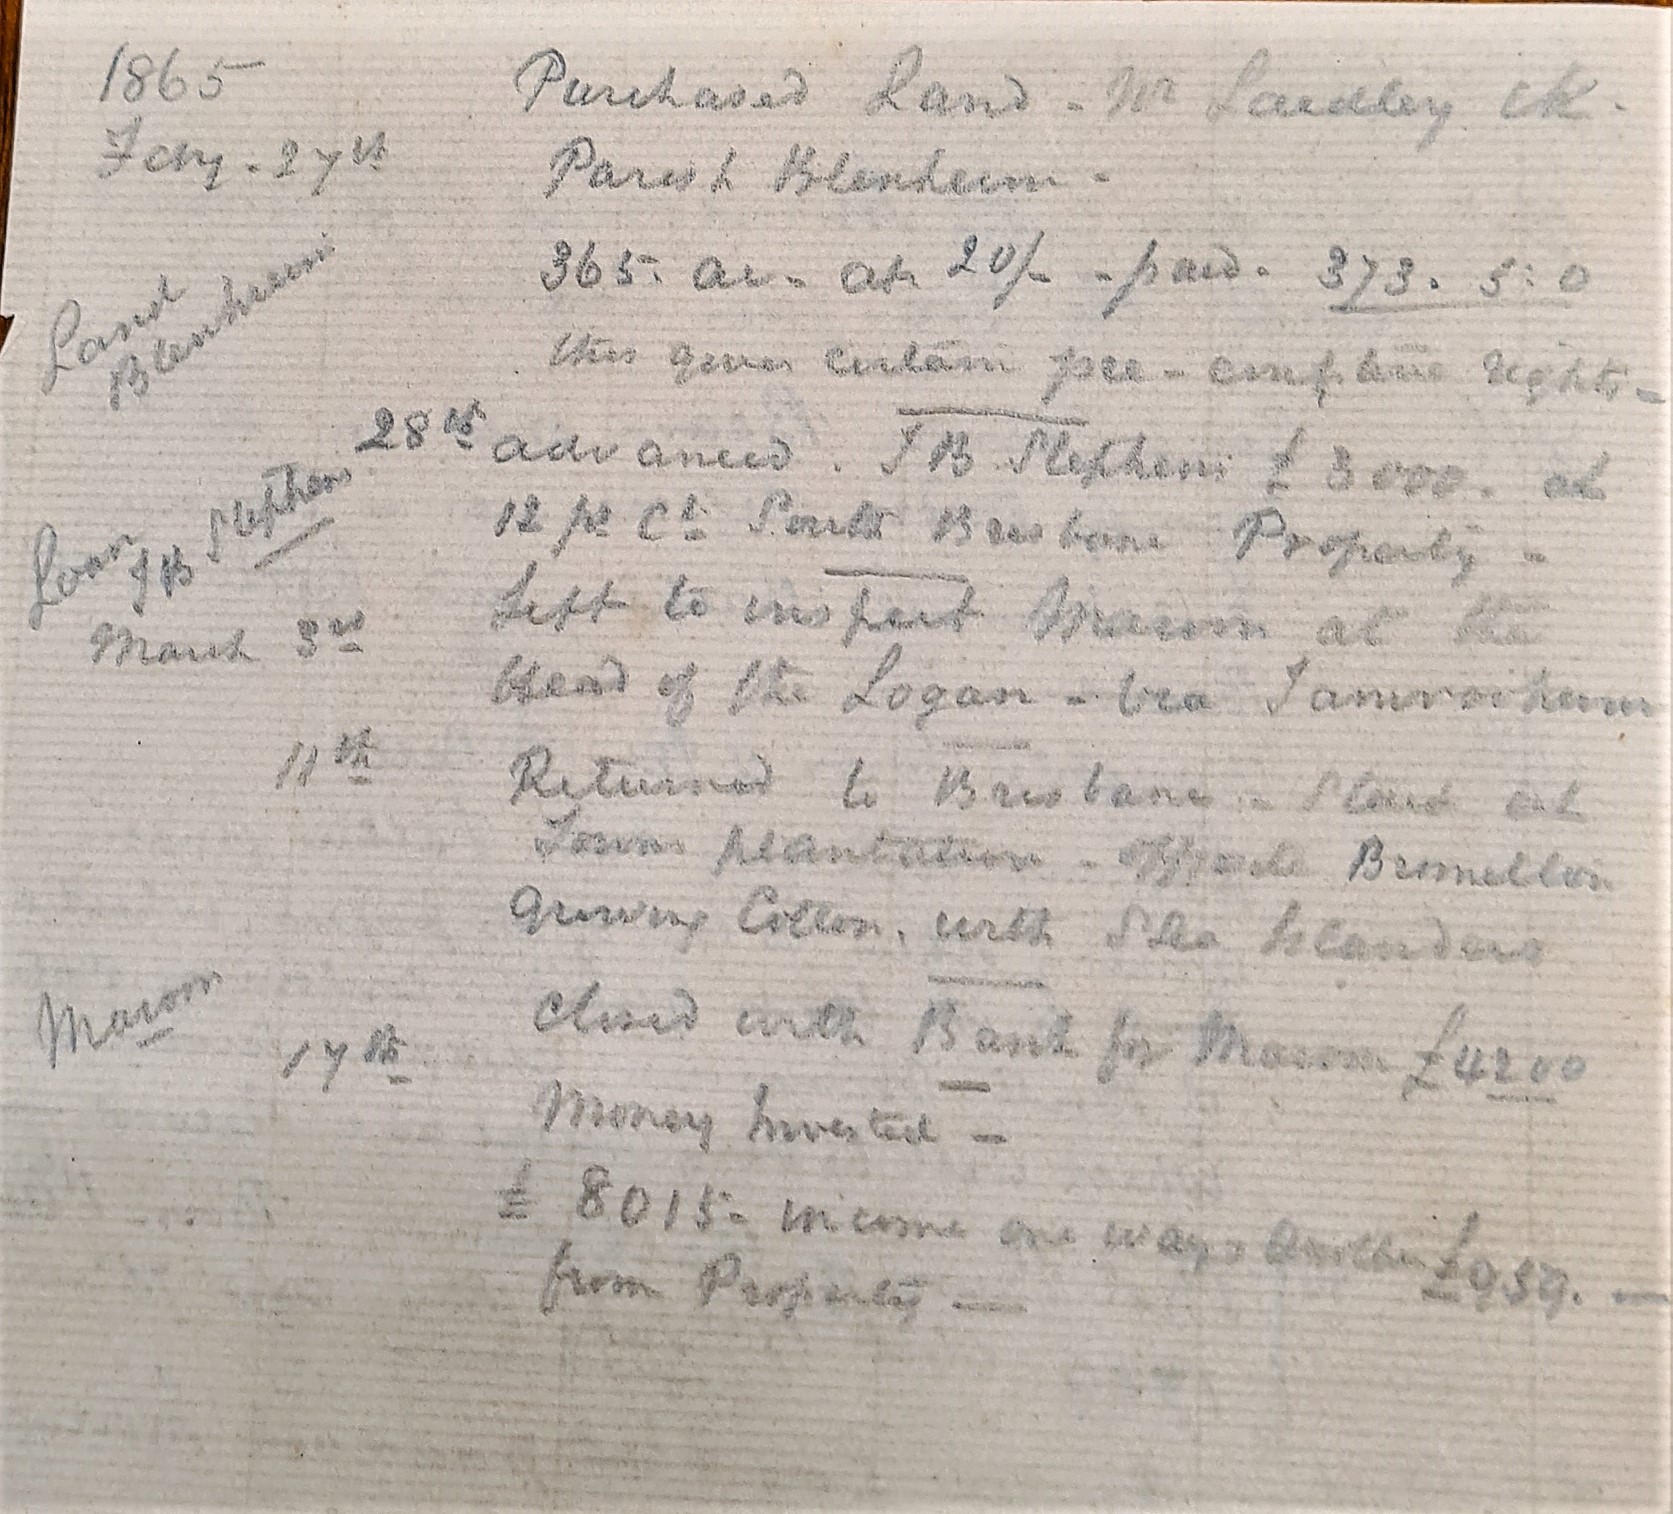 1865
Purchased Land - Nr Laidley Ck -
Feby - 27th
Parish Blenheim -
Land
Blenheim
365. ac - at 20/- - paid - 373. 5: 0
this gives certain pre-emptive rights -
Loan
J B Stephens
28th advanced. J B Stephens £3000. at
12 pr Ct South Brisbane Property -
March 3rd
Left to inspect Maroon at the
Head of the Logan - via
11th
Returned to Brisbane - Staid at
Towns plantation - opposite Bromelton
Growing Cotton, with S Sea Islanders
Maroon
17th
Closed with Bank for Maroon £4200
Money Invested -
£8015 - income one way & another £959. -
from Property -